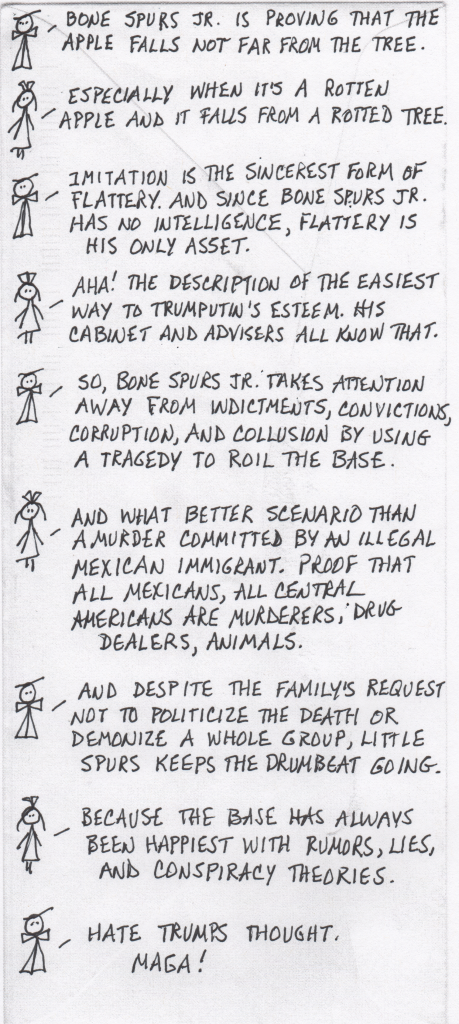 BONE SPURS JR. IS PROVING THAT THE
APPLE FALLS NOT FAR FROM THE TREE.
ESPECIALLY WHEN IT'S A ROTTEN
APPLE AND IT FALLS FROM A ROTTED TREE.
IMITATION IS THE SINCEREST FORM OF
FLATTERY. AND SINCE BONE SPURS JR.
HAS NO INTELLIGENCE, FLATTERY IS
HIS ONLY ASSET.
AHA! THE DESCRIPTION OF THE EASIEST
WAY TO TRUMPUTIN'S ESTEEM. HIS
CABINET AND ADVISERS ALL KNOW THAT.
SO, BONE SPURS JR. TAKES ATTENTION
AWAY FROM INDICTMENTS, CONVICTIONS,
CORRUPTION, AND COLLUSION BY USING
A TRAGEDY TO ROIL THE BASE.
AND WHAT BETTER SCENARIO THAN
A MURDER COMMITTED BY AN ILLEGAL
MEXICAN IMMIGRANT. PROOF THAT
ALL MEXICANS, ALL CENTRAL
AMERICANS ARE MURDERERS, DRUG
DEALERS, ANIMALS.
AND DESPITE THE FAMILY'S REQUEST
NOT TO POLITICIZE THE DEATH OR
DEMONIZE A WHOLE GROUP, LITTLE
SPURS KEEPS THE DRUMBEAT GOING.
BECAUSE THE BASE HAS ALWAYS
BEEN HAPPIEST WITH RUMORS, LIES,
AND CONSPIRACY THEORIES.
HATE TRUMPS THOUGHT.
MAGA!